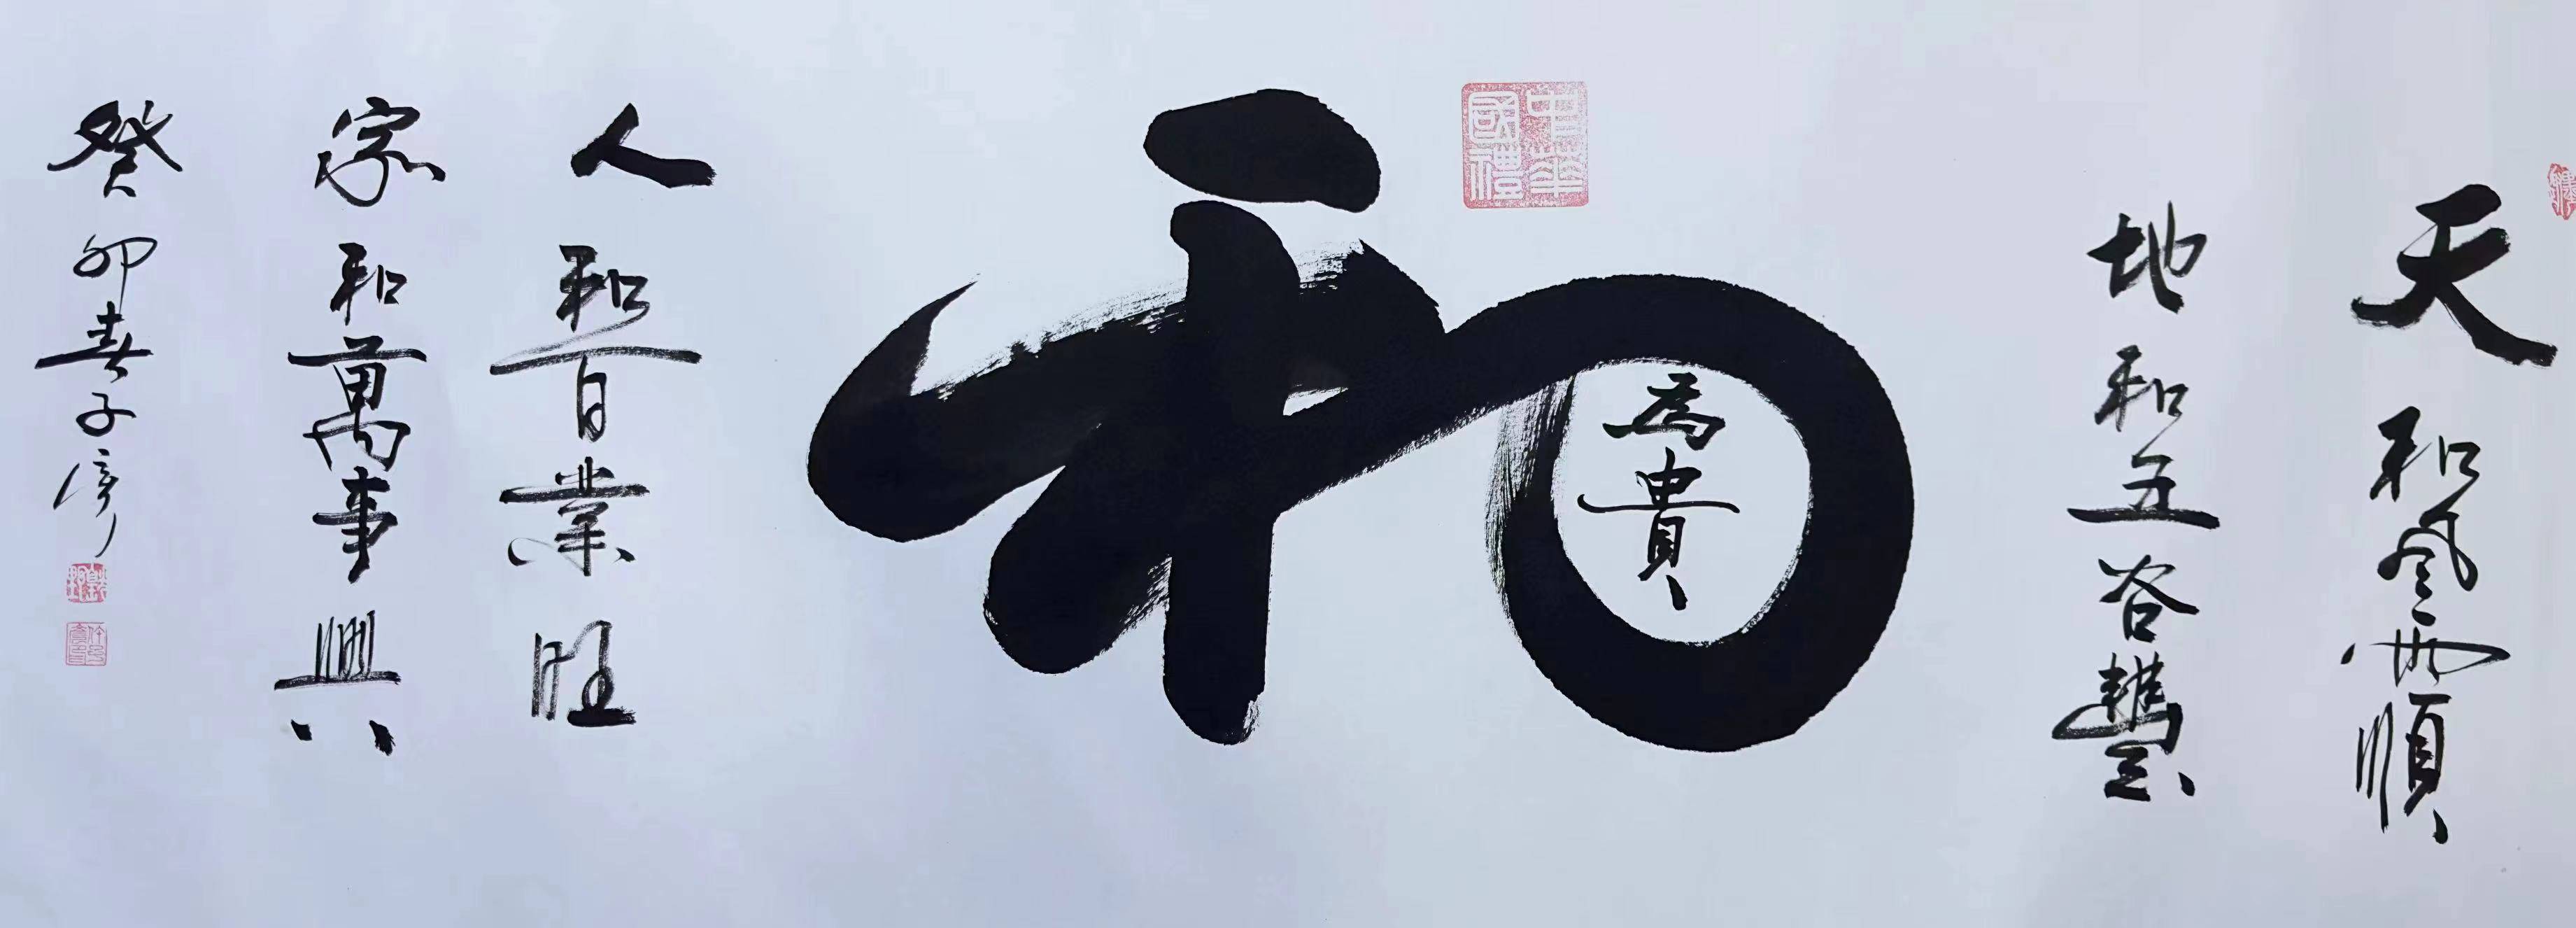 天和風雨順
地和五谷豐
中華國禮
和
為貴
人和百業旺
家和萬事興
癸卯春子彦